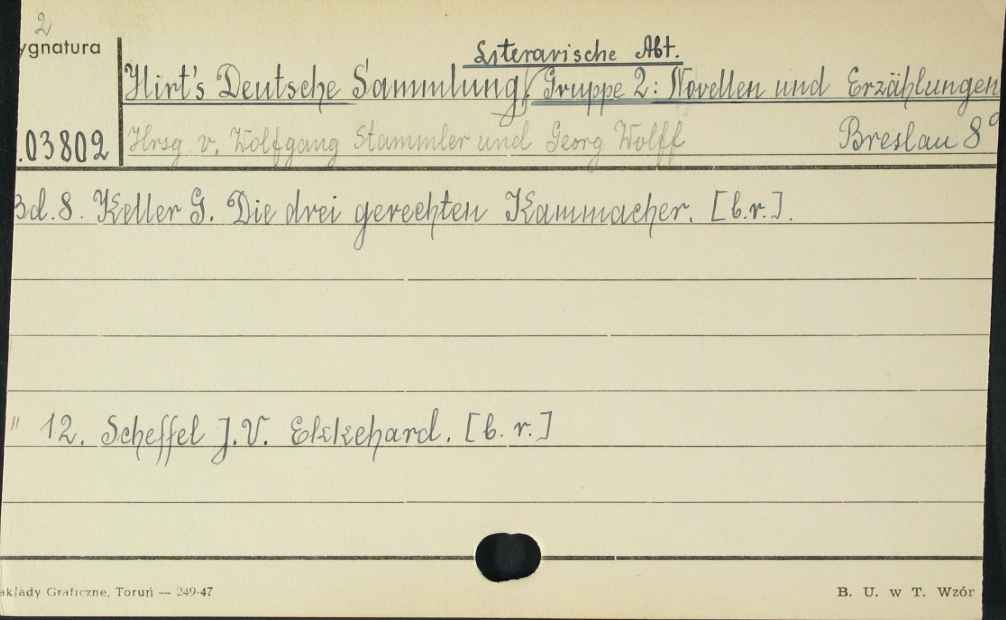 2
ygnatura
Literarische Abt.
Hirt's Deutsche Sammlung/Gruppe 2: Novellen und Erzählungen
.03802 Hrsg v. Wolfgang Stammler und Georg Wolff Breslau 8°
Bd. 8. Keller G. Die drei gerechten Kammacher. [b.r.].
" 12. Scheffel J.V. Ekkehard. [b. r.]
akłady Graficzne, Toruń — 249-47
B. U. w T. Wzór